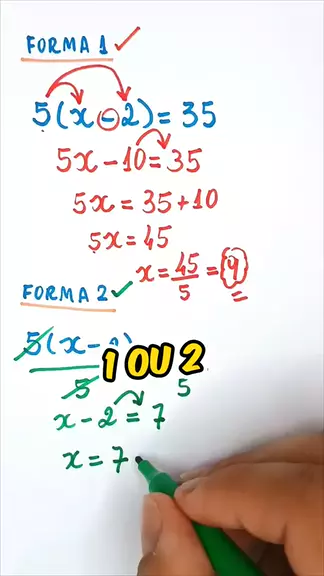 FORMA 1 ✓
5(x-2)=35
5x-10=35
5x=35+10
5x=45
x=45/5=9
FORMA 2 ✓
5(x-
1 OU 2
5 5
x-2=7
x=7